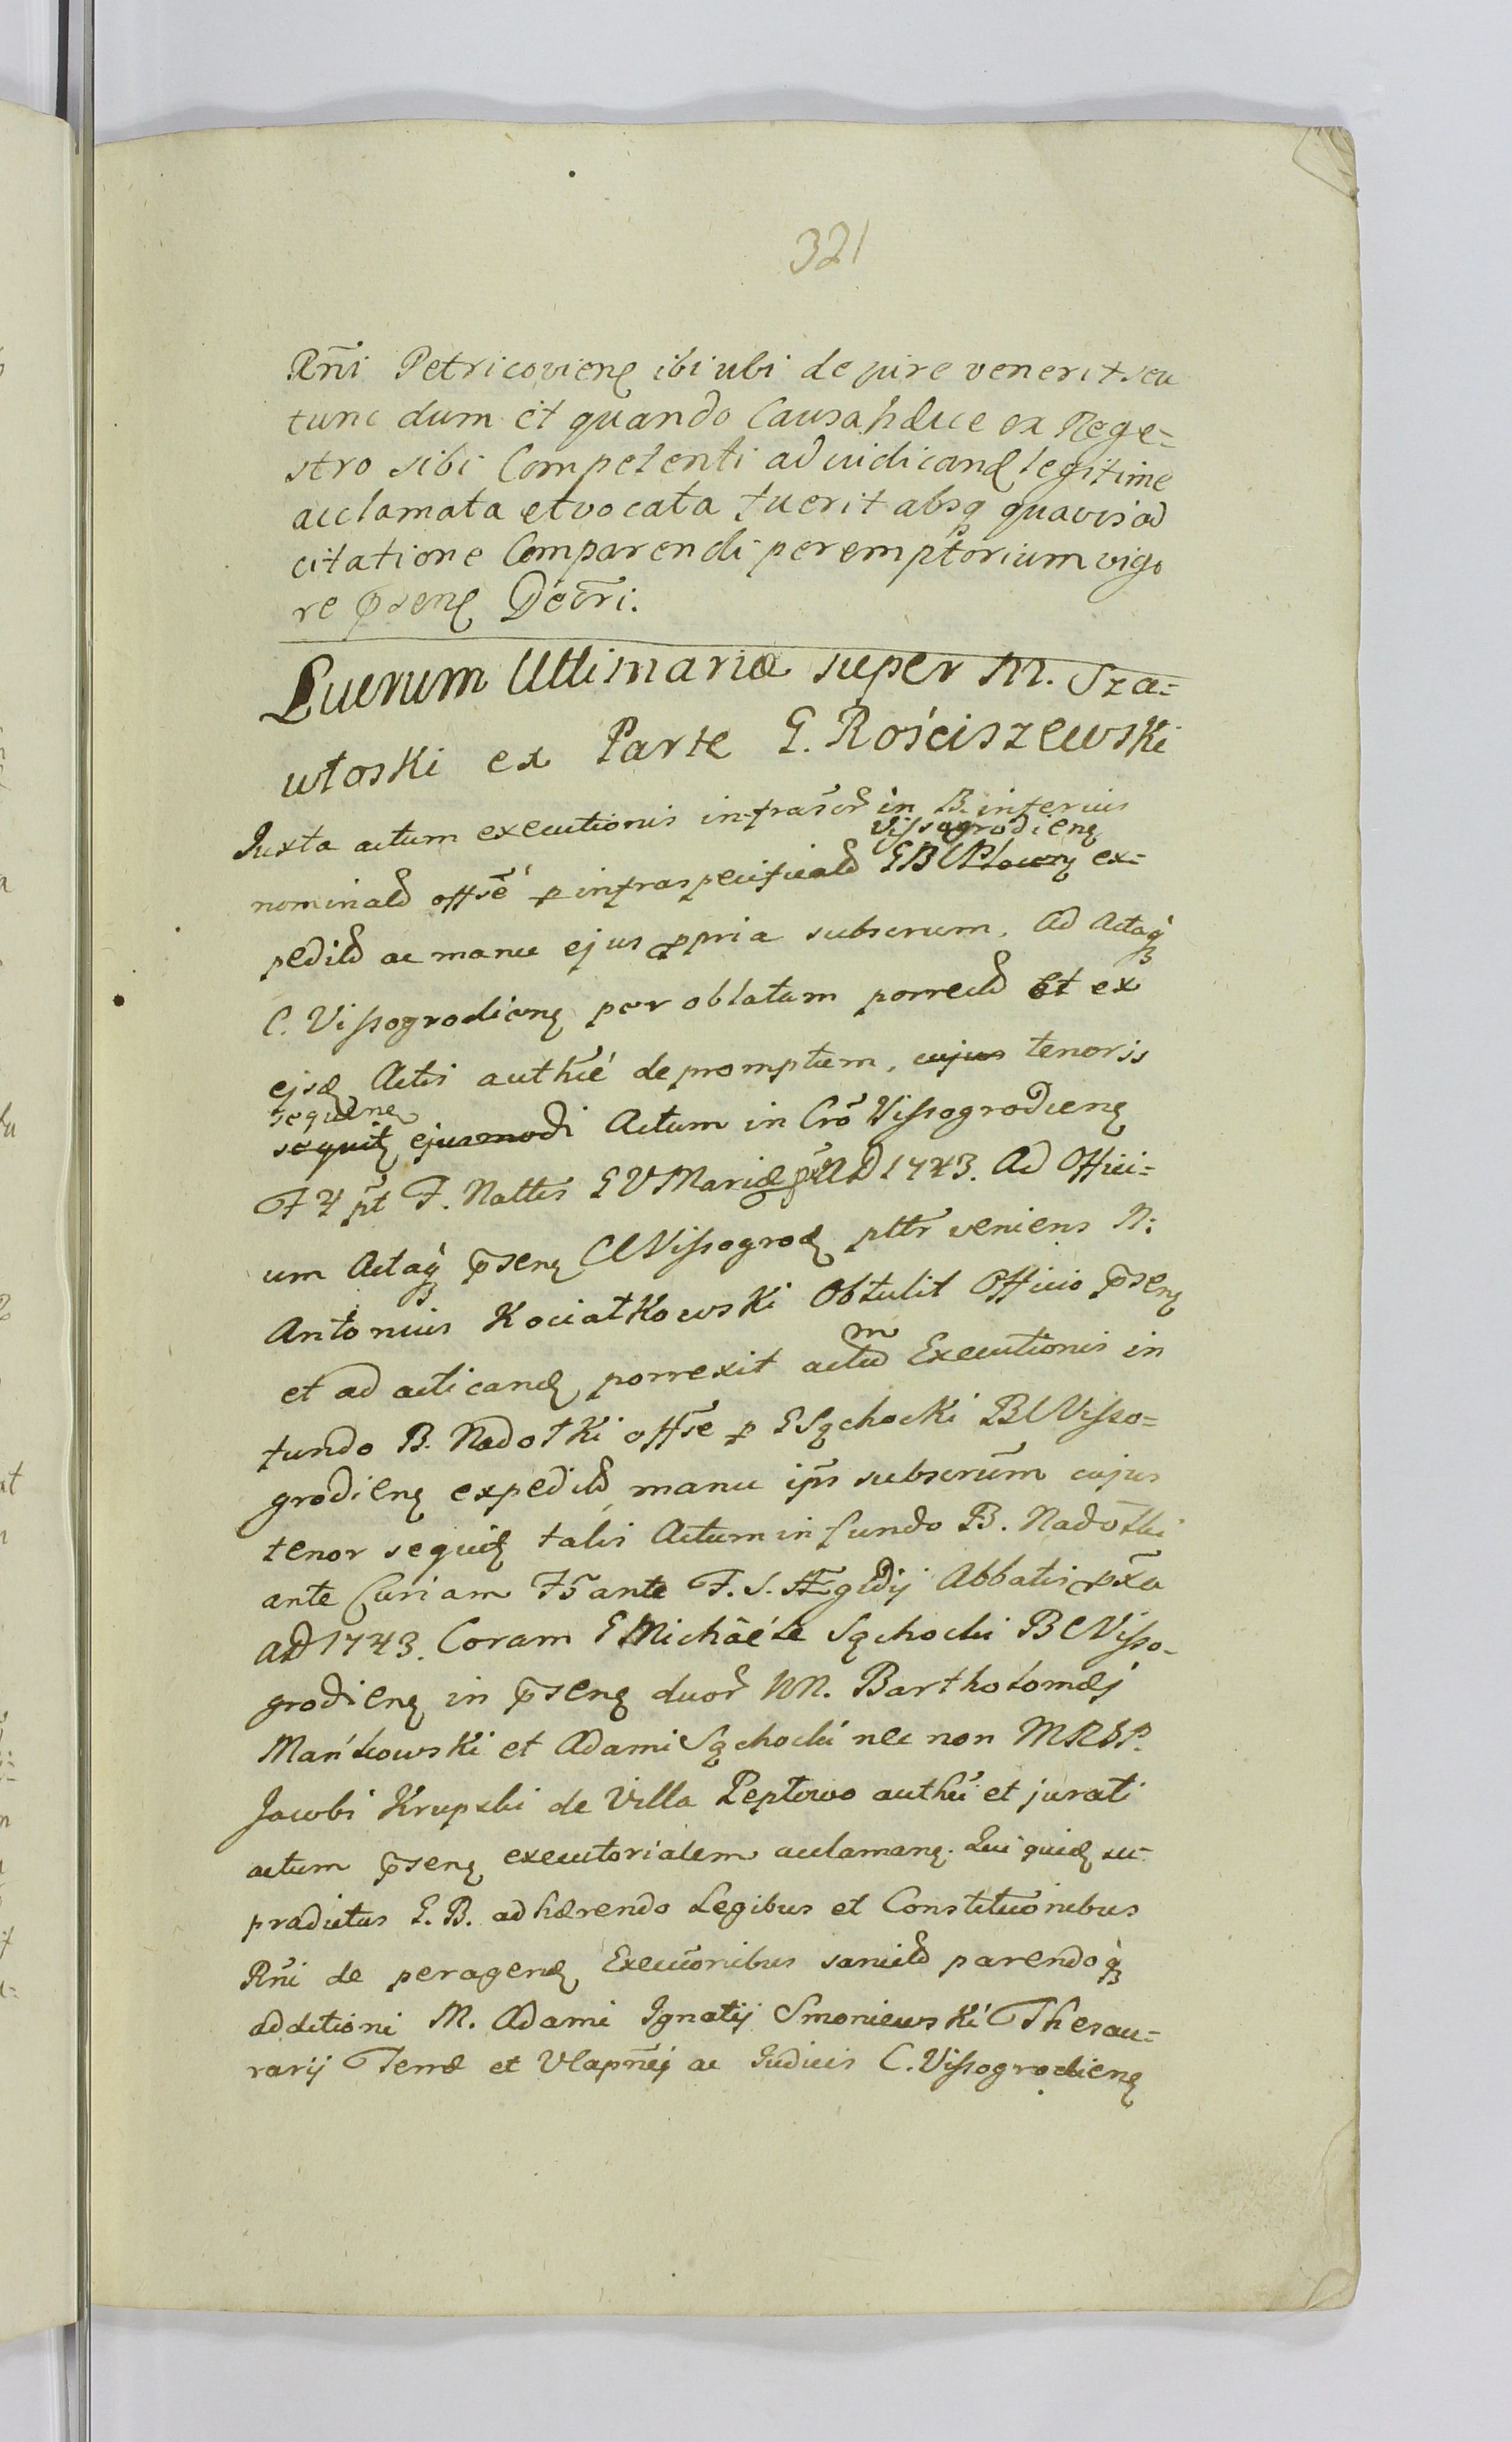 321
Rñi Petricovienȩ ibi ubi de jure venerit seu
tunc dum et quando Causa hæcce ex Rege=
stro sibi Competenti ad iudicanȩ legitime
acclamata et vocata fuerit absqȝ quavis ad
citatione Comparendi peremptorium vigo
re p̄senȩ Decr̃i.
Lucrum Ultimariæ super M. Sza=
włoski ex Parte G. Rościszewski
Juxta actum executionis infrascr̃ in B. inferius
nominatȩ offsẽ p infraspecificatȩ GBC Vissogrodienȩ ex=
peditȩ ac manu ejus ppria subscrum. Ad Actaqȝ
C. Vissogrodienȩ per oblatam porrectȩ et ex
ejsȩ Actis authẽ depromptum, cujus tenoris
sequenȩ
sequitȩ ejusmodi Actum in Cro Vissogrodienȩ
F 4 pt F. Nattis G V Mariæ pxã AD 1743. Ad Offici=
um Actaqȝ p̄senȩ C Vissogrodȩ pltr veniens N:
Antonius Kociatkowski Obtulit Officio p̄senȩ
et ad acticanȩ porrexit actum Executionis in
fundo B. Nadołki offsẽ p G Sąchocki BC Visso=
grodienȩ expeditȩ manu ips subscrum̃ cujus
tenor sequitȩ talis Actum in fundo B. Nadołki
ante Curiam F 5 ante F. S. Ægidij Abbatis pxã
AD 1743. Coram G Michaële Sąchocki BC Visso-
grodienȩ in p̄senȩ duor̃ NN. Bartholomæj
Mańkowski et Adami Sąchocki nec non MRGP.
Jacobi Krupski de Villa Peptowo authci et jurati
actum p̄senȩ executorialem acclamanȩ. Qui quidȩ su-
pradictus G. B. adhærendo Legibus et Constitutionibus
Rñi de peragenȩ Execuonibus sancitȩ parendoqȝ
addictioni M. Adami Ignatij Smoniewski Thesau=
rarij Terræ et Vcapnej ac Judicis C. Vissogrodienȩ